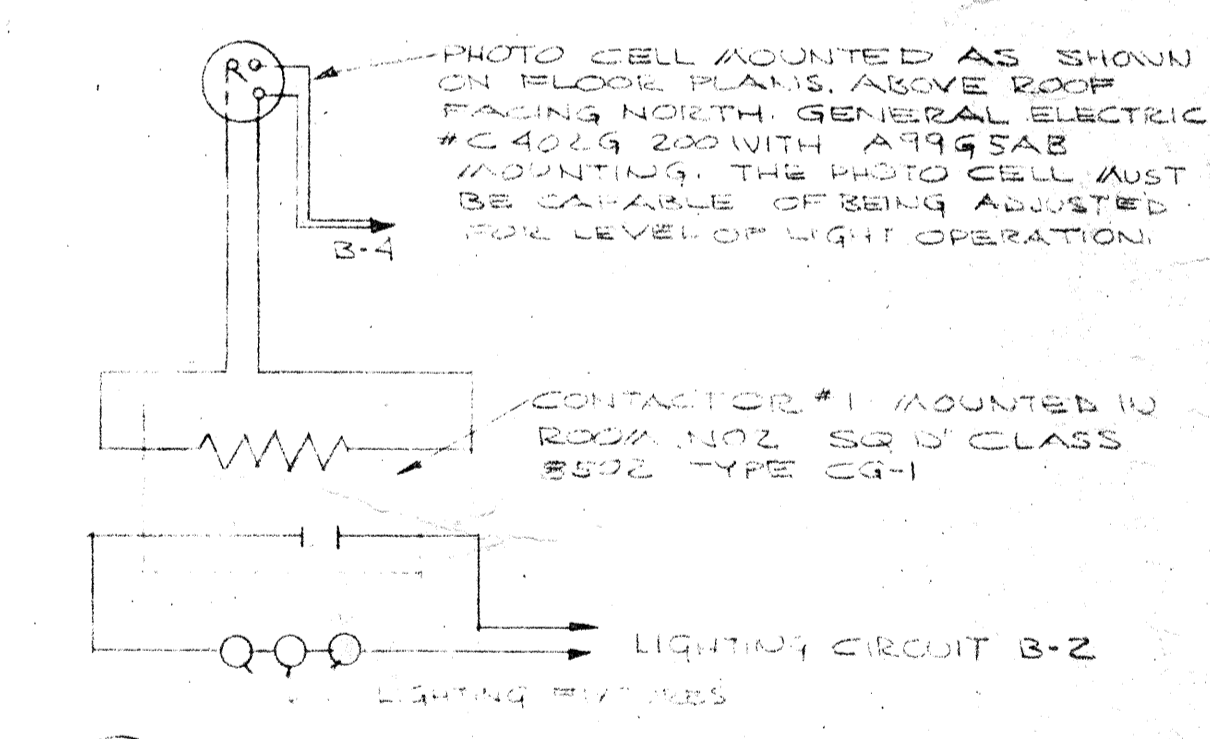 PHOTO CELL MOUNTED AS SHOWN
ON FLOOR PLANS. ABOVE ROOF
FACING NORTH. GENERAL ELECTRIC
#C402G 200 WITH A99G5AB
MOUNTING. THE PHOTO CELL MUST
BE CAPABLE OF BEING ADJUSTED
FOR LEVEL OF LIGHT OPERATION.
B-4
CONTACTOR #1 MOUNTED IN
ROOM NO2 SQ D' CLASS
8502 TYPE CG-1
LIGHTING CIRCUIT B-2
LIGHTING FIXTURES